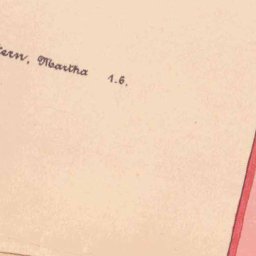 ern, Martha 1.6.